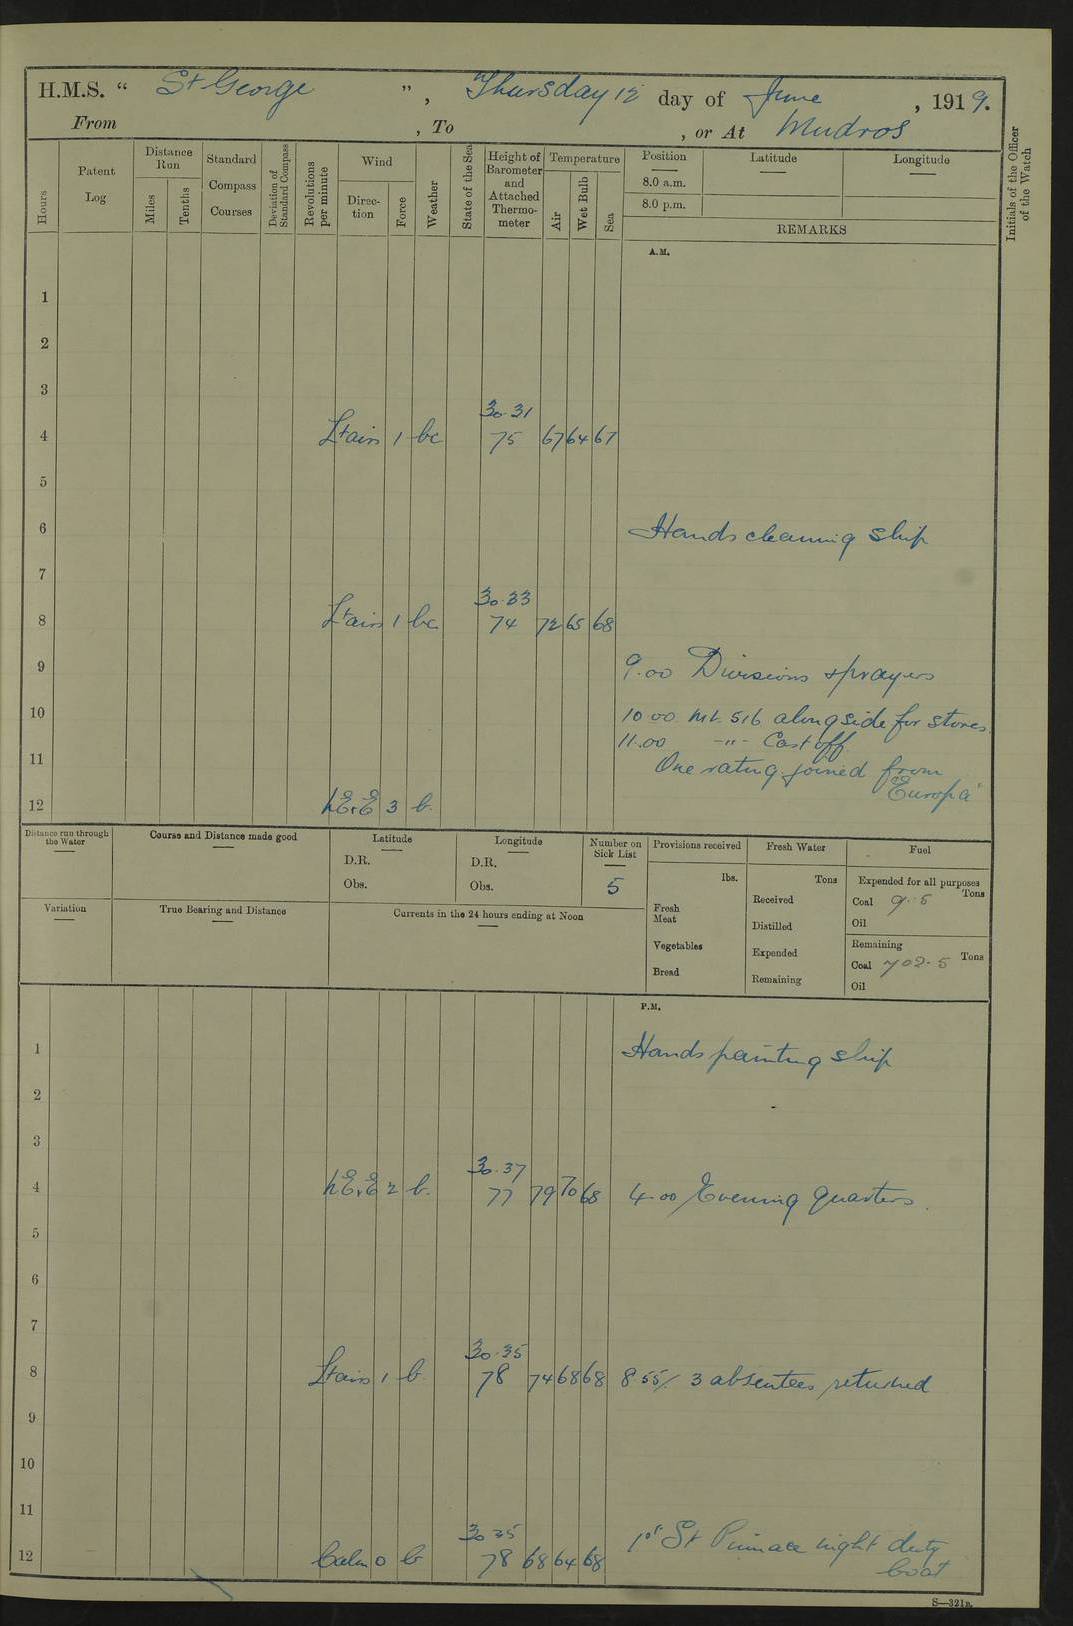 H.M.S. " St George ", Thursday 12 day of June, 1919.
From , To , or At Mudros
Hours
Patent Log
Distance Run
Miles
Tenths
Standard Compass Courses
Deviation of Standard Compass
Revolutions per minute
Wind
Direction
Force
Weather
State of the Sea
Height of Barometer and Attached Thermometer
Temperature
Air
Wet Bulb
Sea
Position
Latitude
Longitude
8.0 a.m.
8.0 p.m.
REMARKS
Initials of the Officer of the Watch
A.M.
1
2
3
30.31
4 Lt airs 1 bc 75 67 64 67
5
6 Hands cleaning ship
7
30.33
8 Lt airs 1 bc 74 72 65 68
9 9.00 Divisions & prayers
10 10 00 ML 516 alongside for stores
11.00 -"- Cast off
11 One rating joined from
"Europa"
12 3 b.
Distance run through the Water
Course and Distance made good
Latitude
D.R.
Obs.
Longitude
D.R.
Obs.
Number on Sick List
5
Provisions received
lbs.
Fresh Meat
Vegetables
Bread
Fresh Water
Tons
Received
Distilled
Expended
Remaining
Fuel
Expended for all purposes
Tons
Coal 9.5
Oil
Remaining
Coal 702.5 Tons
Oil
Variation
True Bearing and Distance
Currents in the 24 hours ending at Noon
P.M.
1 Hands painting ship
2
3
30.37
4 2 b. 77 79 70 68 4.00 Evening Quarters.
5
6
7
30.35
8 Lt airs 1 b. 78 74 68 68 8 55/ 3 absentees returned
9
10
11
30 35
12 Calm 0 b 78 68 64 68 1st St Pinnace night duty
boat
S—321B.